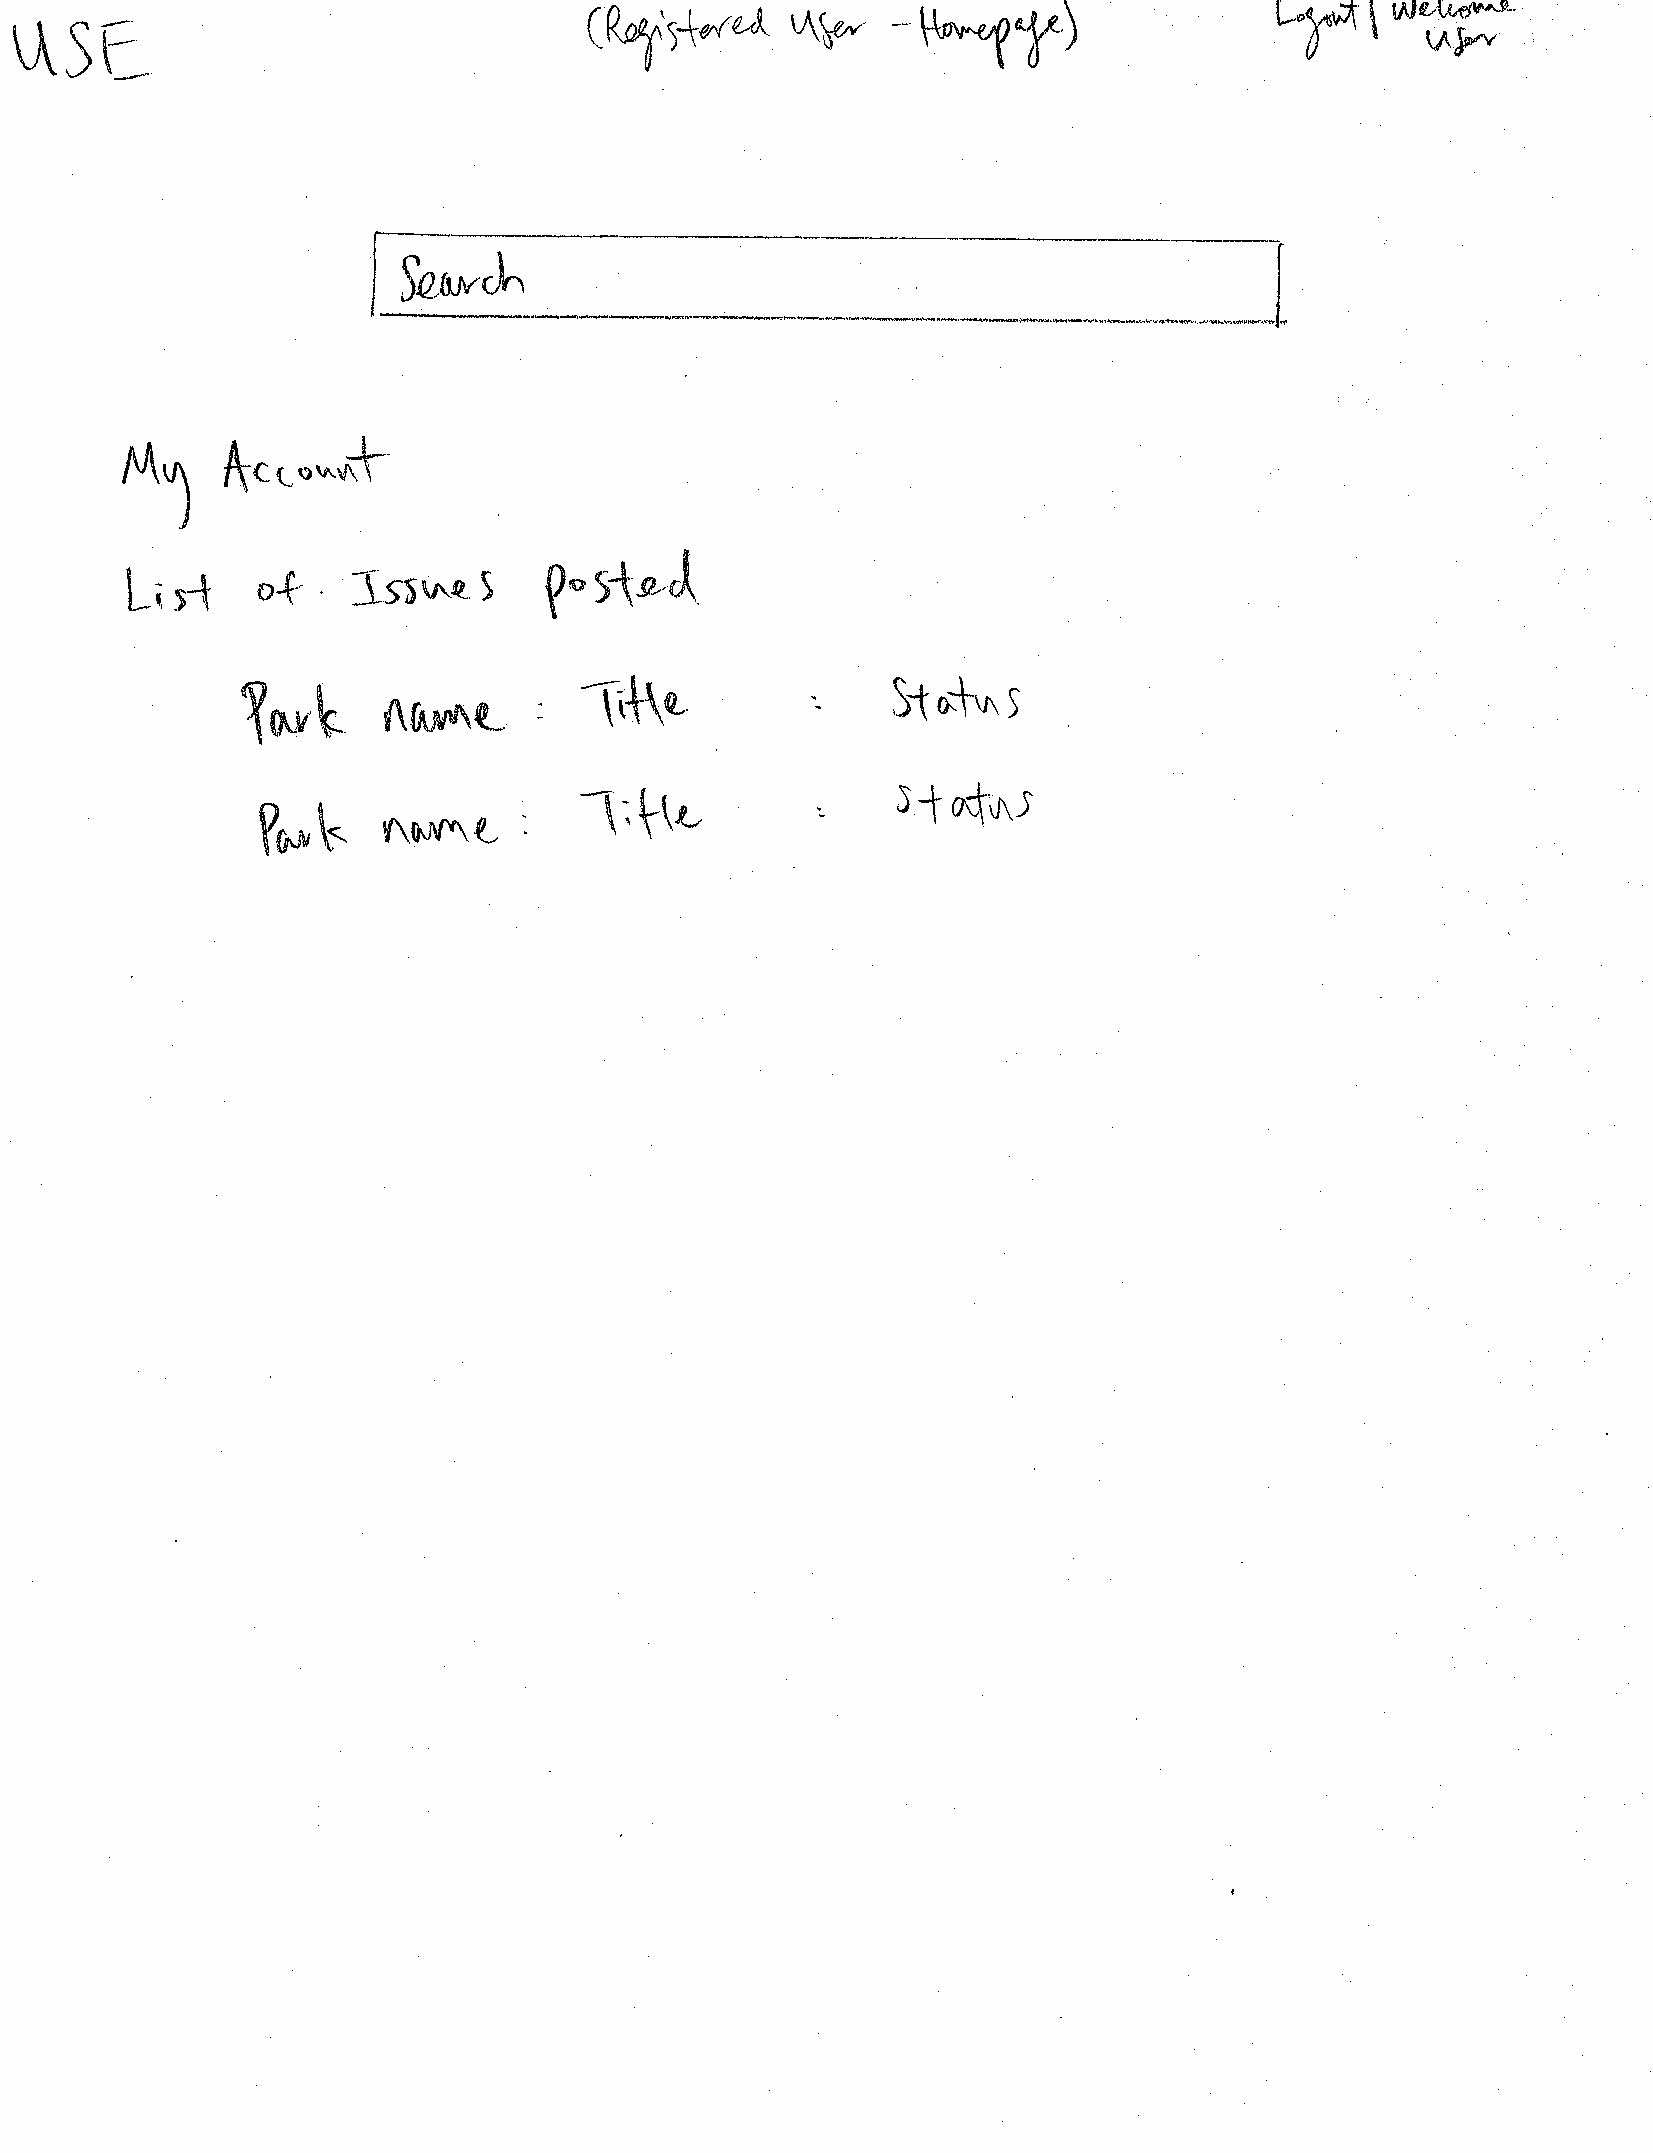 USE
(Registered User - Homepage)
Logout | Welcome
User
Search
My Account
List of Issues posted
Park name : Title : Status
Park name : Title : Status